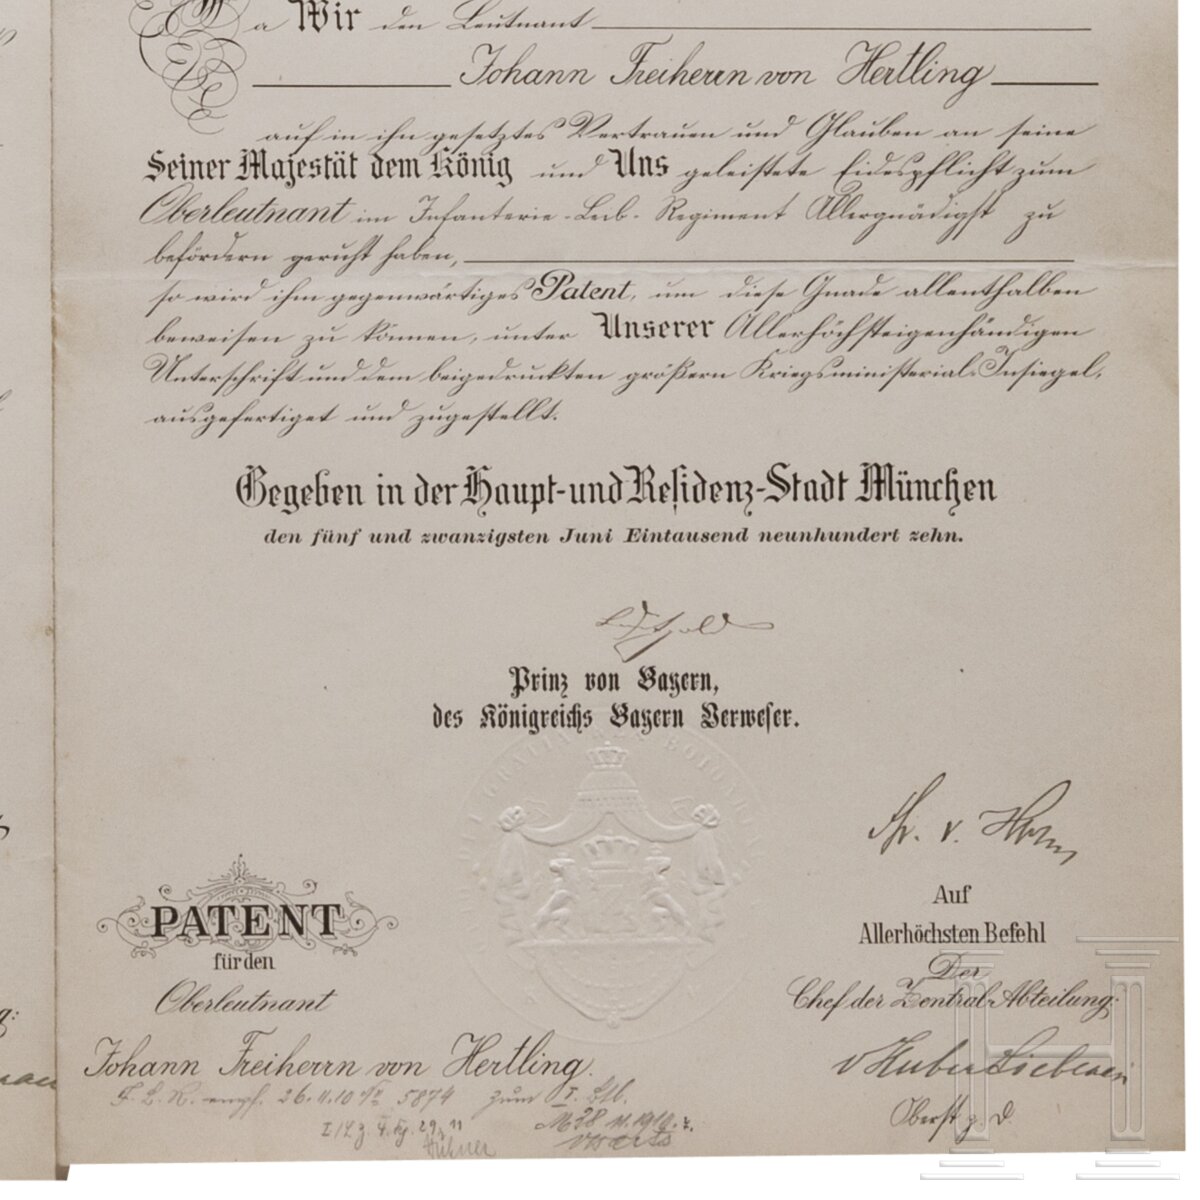 Da Wir den Leutnant
Johann Freiherrn von Hertling
auf in ihn gesetztes Vertrauen und Glauben an seine
Seiner Majestät dem König und Uns geleistete Eidespflicht zum
Oberleutnant im Infanterie-Leib-Regiment Allergnädigst zu
befördern geruht haben,
so wird ihm gegenwärtiges Patent, um diese Gnade allenthalben
beweisen zu können, unter Unserer Allerhöchsteigenhändigen
Unterschrift und dem beigedruckten größern Kriegsministerial-Insiegel,
ausgefertiget und zugestellt.
Gegeben in der Haupt-und Residenz-Stadt München
den fünf und zwanzigsten Juni Eintausend neunhundert zehn.
Luitpold
Prinz von Bayern,
des Königreichs Bayern Verweser.
Frh. v. Horn
Auf
Allerhöchsten Befehl
Der
Chef der Zentral-Abteilung:
v Huber Liebenau
Oberst z. D.
PATENT
für den
Oberleutnant
Johann Freiherrn von Hertling.
empf. 26. 11. 10 № 5874 zum I. Btl.